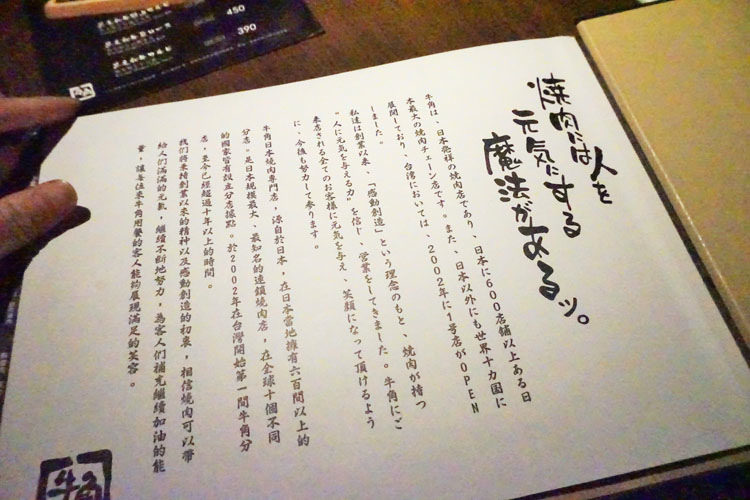 450
390
焼肉には人を
元気にする
魔法があるッ。
牛角は、日本発祥の焼肉店であり、日本に600店舗以上ある日
本最大の焼肉チェーン店です。また、日本以外にも世界十カ国に
展開しており、台湾においては、2002年に1号店がOPEN
しました。
私達は創業以来、「感動創造」という理念のもと、焼肉が持つ
“人に元気を与える力”を信じ、営業をしてきました。牛角にご
来店される全てのお客様に元気を与え、笑顔になって頂けるよう
に、今後も努力して参ります。
牛角日本燒肉專門店，源自於日本，在日本當地擁有六百間以上的
分店。是日本規模最大、最知名的連鎖燒肉店，在全球十個不同
的國家皆有設立分店據點。於2002年在台灣開始第一間牛角分
店，至今已經超過十年以上的時間。
我們將秉持創業以來的精神以及感動創造的初衷，相信燒肉可以帶
給人們滿滿的元氣，繼續不斷地努力，為客人們補充繼續加油的能
量，讓每位來牛角用餐的客人能夠展現滿足的笑容。
牛角